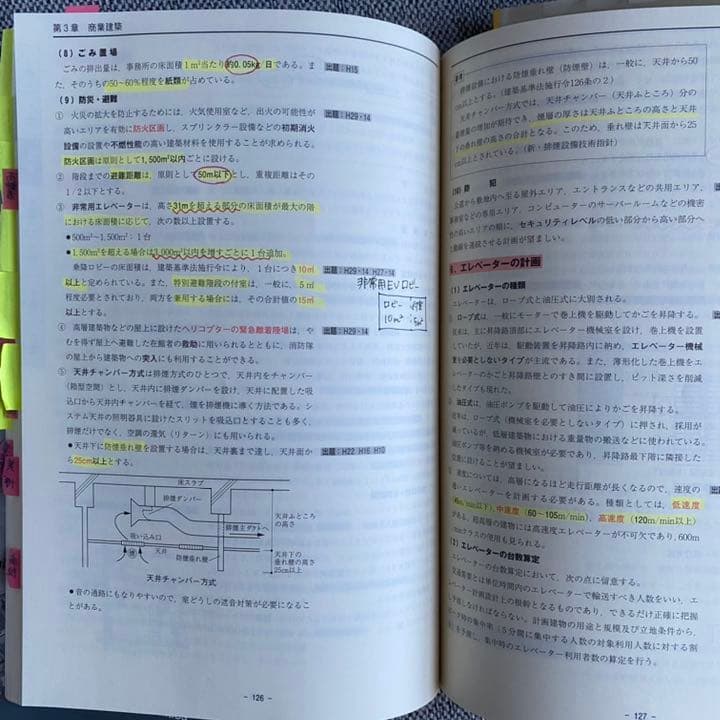 第3章 商業建築
(8) ごみ置場
ごみの排出量は、事務所の床面積1m²当たり約0.05kg/日である。ま
た、そのうちの50～60%程度を紙類が占めている。
出題:H15
(9) 防災・避難
① 火災の拡大を防止するためには、火気使用室など、出火の可能性が
高いエリアを有効に防火区画し、スプリンクラー設備などの初期消火
設備の設置や不燃性能の高い建築材料を使用することが求められる。
防火区画は原則として1,500m²以内ごとに設ける。
出題:H29・14
② 階段までの避難距離は、原則として50m以下とし、重複距離はその
1/2以下とする。
③ 非常用エレベーターは、高さ31mを超える部分の床面積が最大の階
における床面積に応じて、次の数以上設置する。
●500m²～1,500m²:1台
●1,500m²を超える場合は3,000m²以内を増すごとに1台追加。
乗降ロビーの床面積は、建築基準法施行令により、1台につき10㎡
以上と定められている。また、特別避難階段の付室は、一般に、5㎡
程度必要とされており、両方を兼用する場合には、その合計値の15㎡
以上とする。
出題:H29・14 H27・14
非常用EVロビー
ロビー 付室
10m² 5m²
④ 高層建築物などの屋上に設けたヘリコプターの緊急離着陸場は、や
むを得ず屋上へ避難した在館者の救助に用いられるとともに、消防隊
の屋上から建築物への突入にも利用することができる。
出題:H29・14
⑤ 天井チャンバー方式は排煙方式のひとつで、天井内をチャンバー
(箱型空間)とし、天井内に排煙ダンパーを設け、天井に配置した吸
込口から天井内チャンバーを経て、煙を排煙機に導く方法である。シ
ステム天井の照明器具に設けたスリットを吸込口とすることも多く、
排煙だけでなく、空調の還気(リターン)にも用いられる。
●天井下に防煙垂れ壁を設置する場合は、天井裏まで達し、天井面か
ら25cm以上とする。
出題:H22 H16 H10
床スラブ
排煙ダンパー
天井ふところ
の高さ
排煙主ダクトへ
吸い込み口
天井
防煙垂れ壁
煙
天井下の
垂れ壁の高さ
25cm以上
天井チャンバー方式
●音の通路にもなりやすいので、室どうしの遮音対策が必要になるこ
とがある。
- 126 -
排煙設備における防煙垂れ壁(防煙壁)は、一般に、天井から50
cm以上とする。(建築基準法施行令126条の2)
天井チャンバー方式では、天井チャンバー(天井ふところ)分の
蓄煙量の増加が期待でき、煙層の厚さは天井ふところの高さと天井
下の垂れ壁の高さの合計となる。このため、垂れ壁は天井面から25
cm以上とされている。(新・排煙設備技術指針)
(10) 防 犯
公道から敷地内へ至る屋外エリア、エントランスなどの共用エリア、
事務室などの専用エリア、コンピューターのサーバールームなどの機密
性の高いエリアの順に、セキュリティレベルの低い部分から高い部分へ
と動線を連続させる計画が望ましい。
エレベーターの計画
(1) エレベーターの種類
エレベーターは、ロープ式と油圧式に大別される。
ロープ式は、一般にモーターで巻上機を駆動してかごを昇降する。
従来は、主に昇降路頂部にエレベーター機械室を設け、巻上機を設置
していたが、近年は、駆動装置を昇降路内に納め、エレベーター機械
室を必要としないタイプが主流である。また、薄形化した巻上機をエ
レベーターのかごと昇降路壁とのすき間に設置し、ピット深さを削減
したタイプも現れた。
油圧式は、油圧ポンプを駆動して油圧によりかごを昇降する。
近年は、ロープ式(機械室を必要としないタイプ)に押され、採用が
減っているが、低層建築物における重量物の搬送などに使われている。
油圧ポンプ等を納める機械室が必要であり、昇降路最下階に隣接した
位置に設けることが望ましい。
速度については、高層になるほど走行距離が長くなるので、速度の
速いエレベーターを計画する必要がある。種類としては、低速度
(45m/min以下)、中速度(60～105m/min)、高速度(120m/min以上)
がある。超高層の建物には高速度エレベーターが不可欠であり、600m
/minクラスの使用も見られる。
(2) エレベーターの台数算定
エレベーターの台数算定において、次の点に留意する。
交通需要とは単位時間内のエレベーターで輸送すべき人数をいい、エ
レベーター計画設計上の根幹となるものであり、できるだけ正確に把握
しなければならない。計画建物の用途と規模及び立地条件から、
ピーク時の集中率(5分間に集中する人数の対象利用人数に対する割
合)を予想し、集中時のエレベーター利用者数の算定を行う。
- 127 -